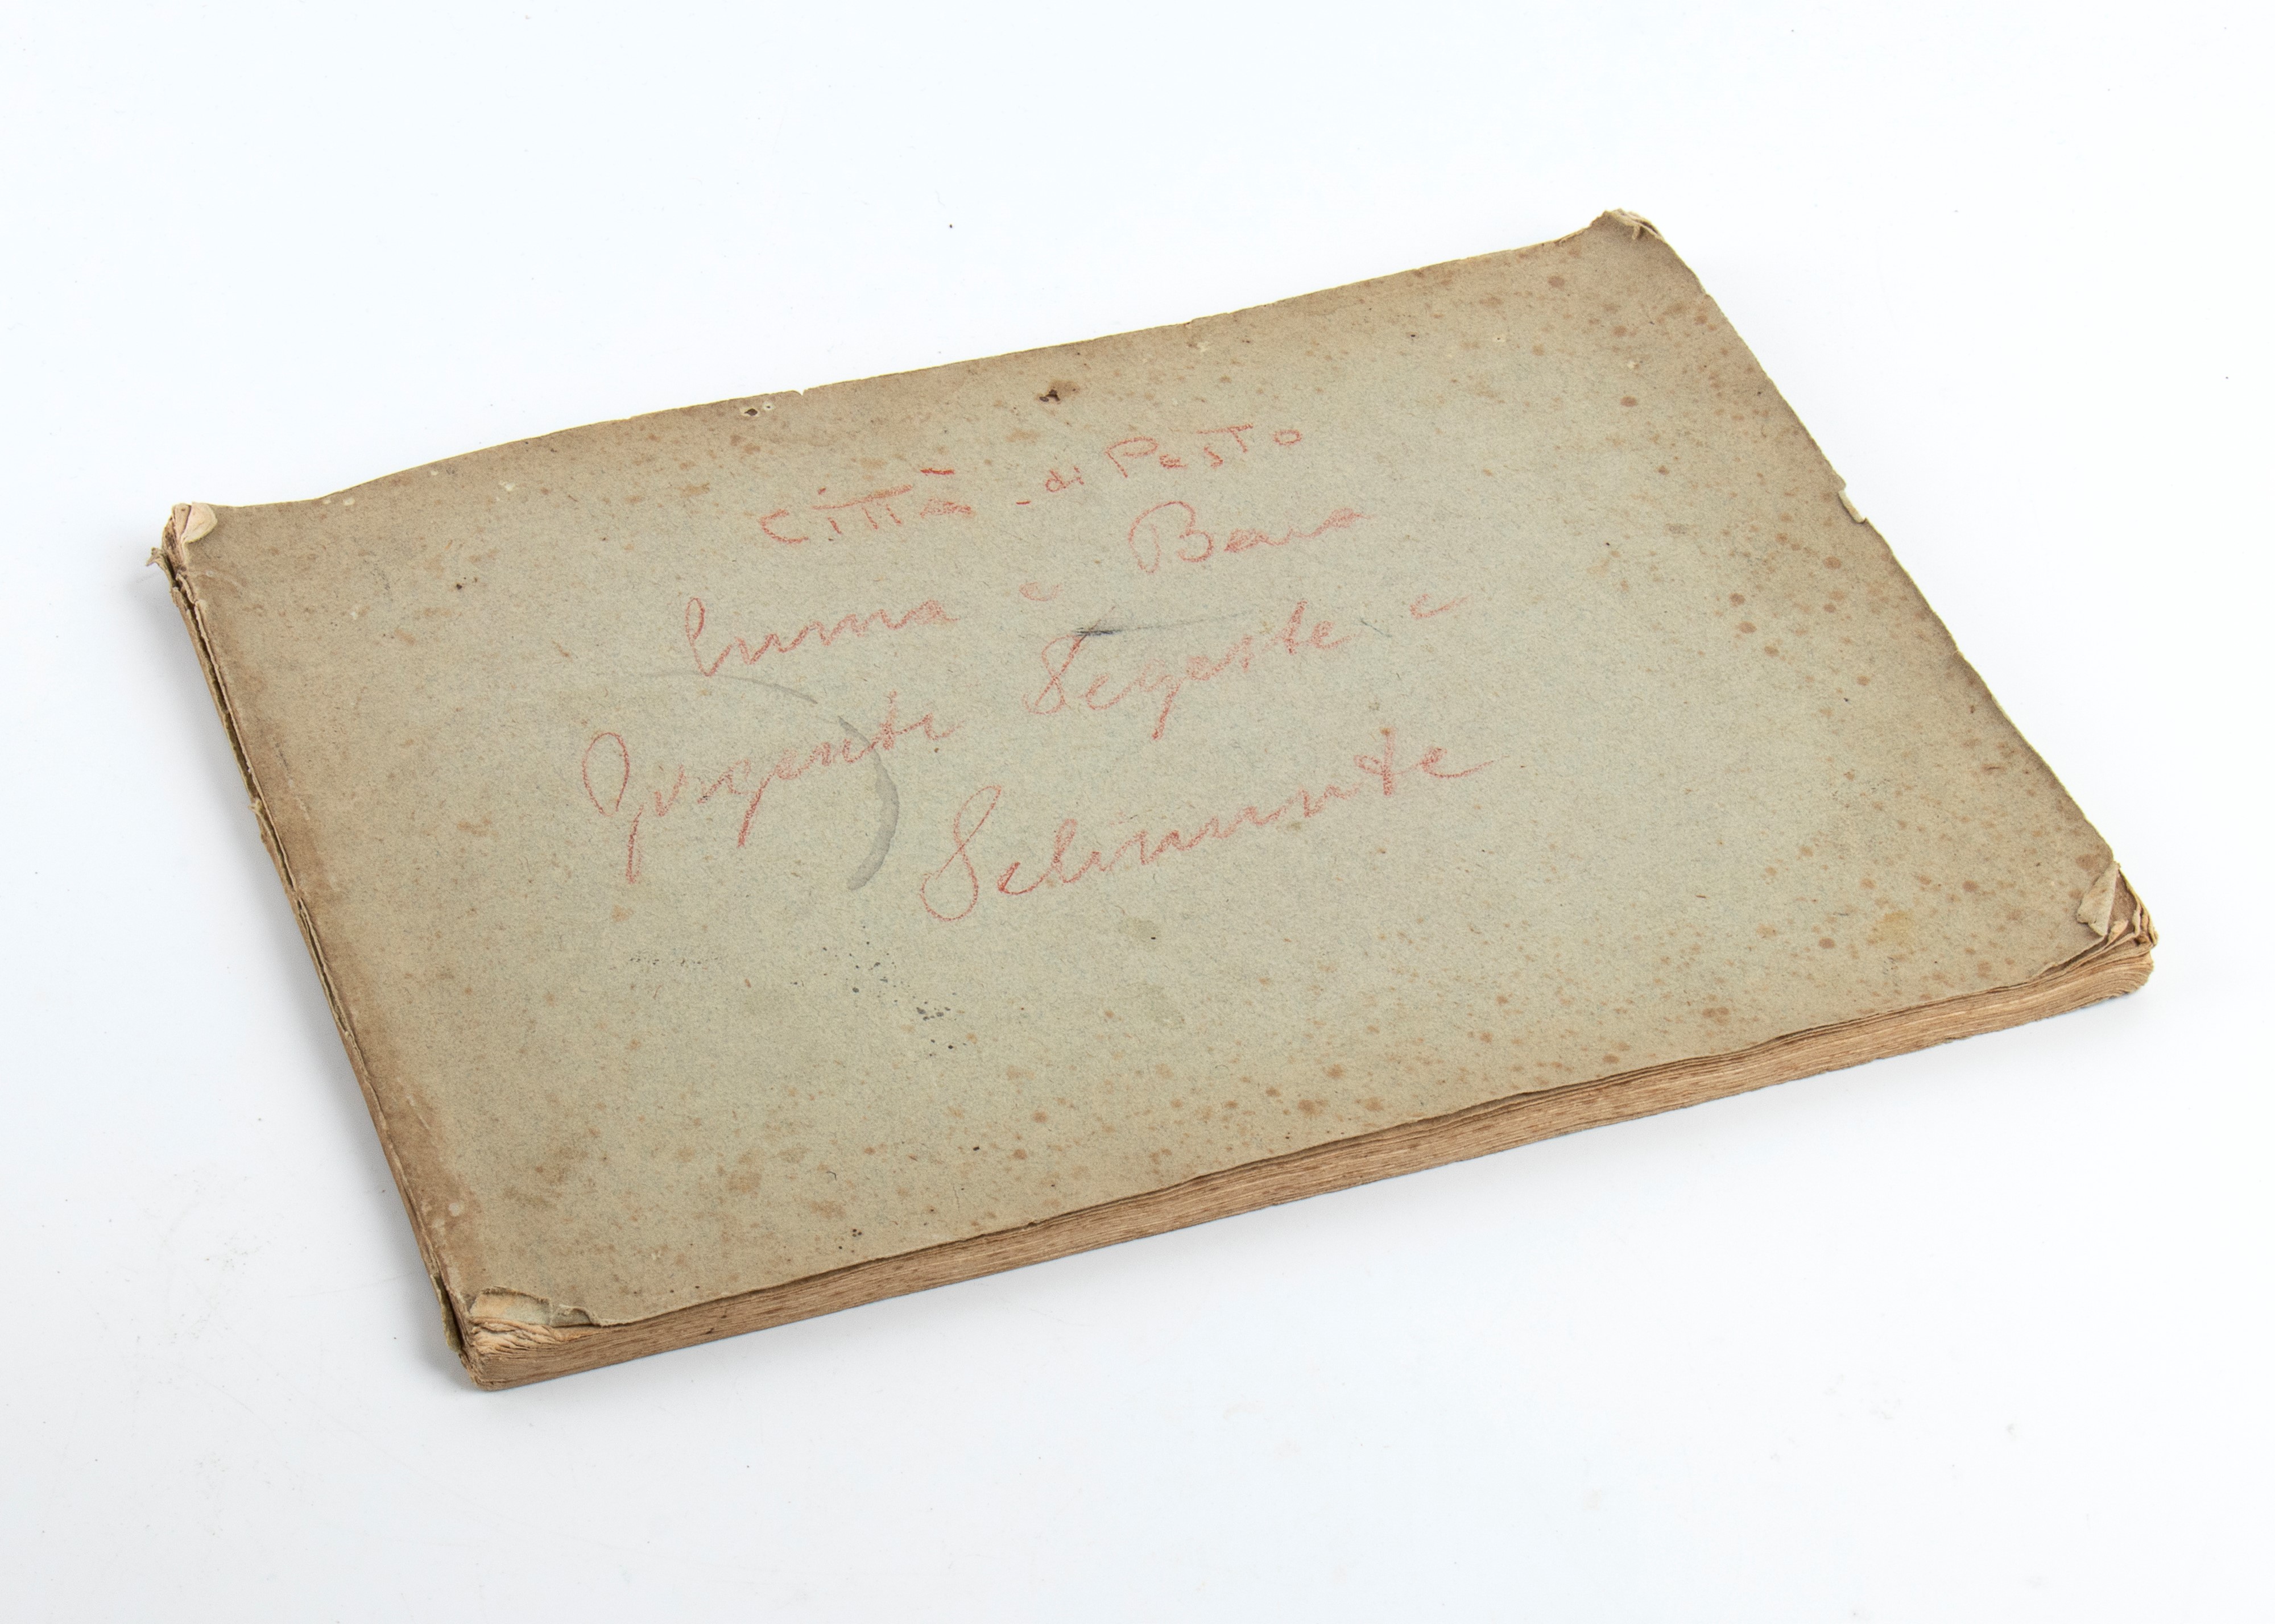 Città - di Pesto
Cuma e Baia
Girgenti Segeste e
Selinunte